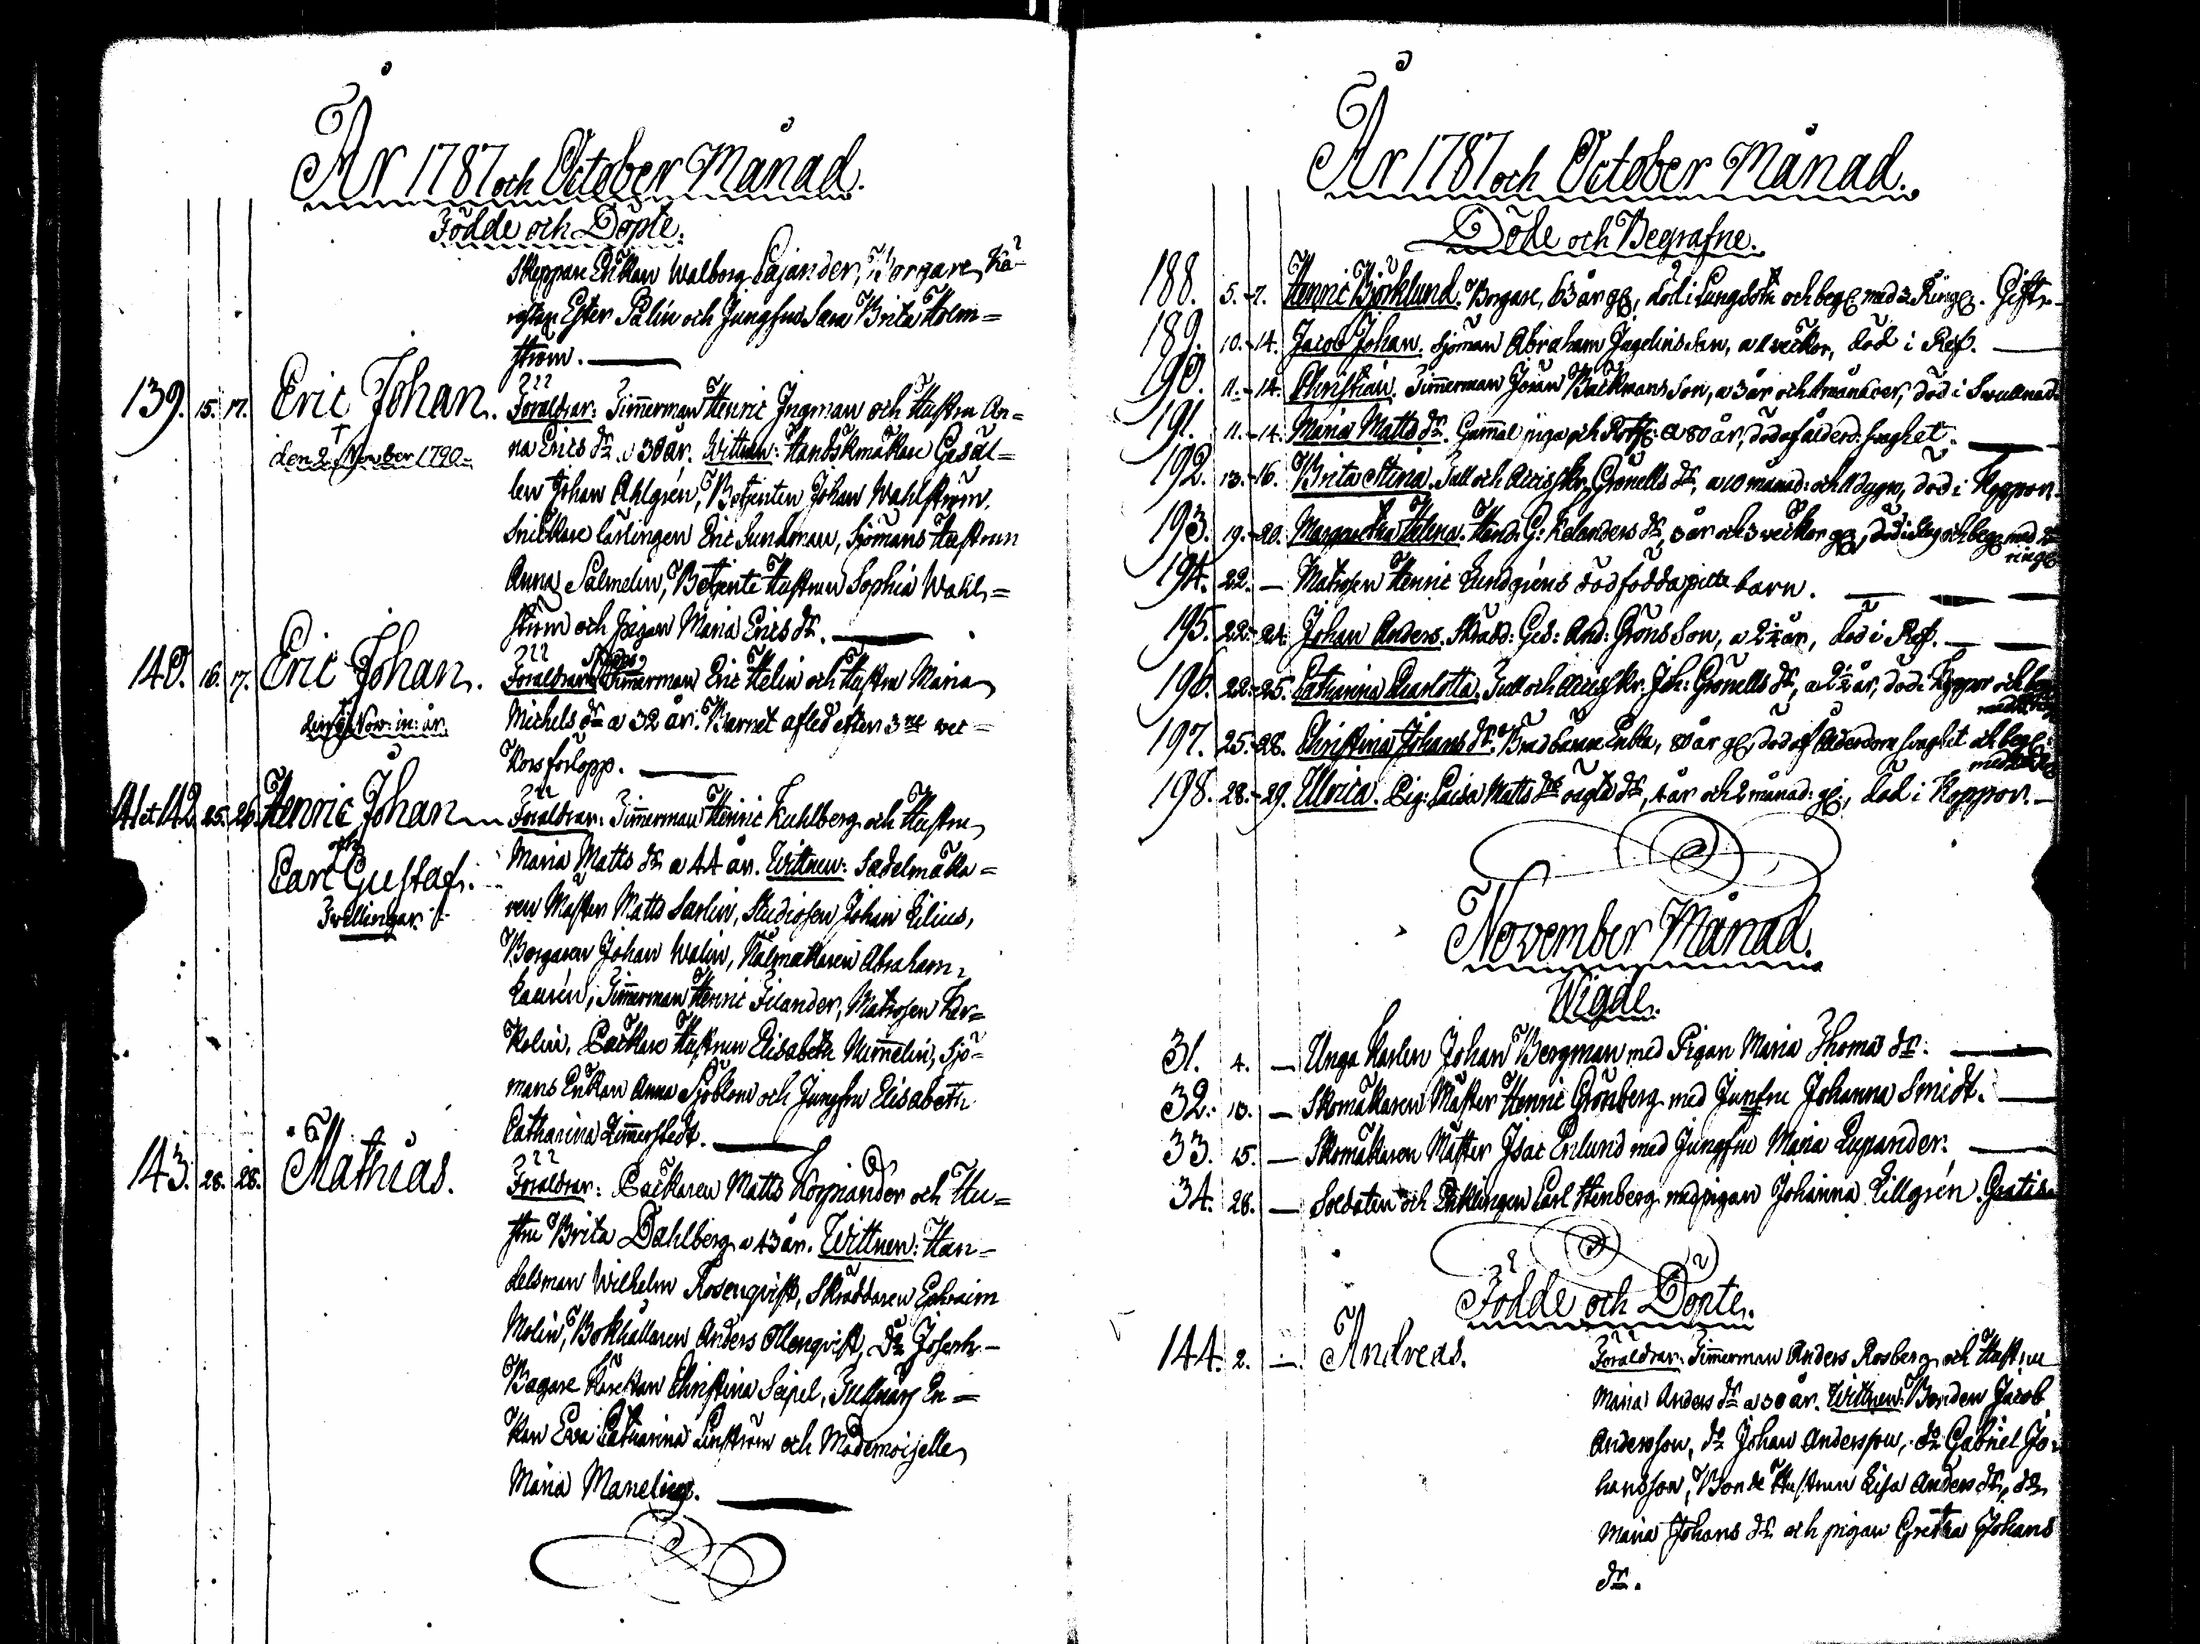 År 1787 och October Månad.
Födde och Döpte.
Skeppare Enkan Walborg Cajander, Borgare Kä-
restan Ester Palin och Jungfrun Sara Brita Holm=
ström.
139. 15. 17. Eric Johan. Föräldrar: Timmerman Henric Ingman och Hustru An=
den 2 November 1790. na Erics dr. a 30 år. Wittnen: Handskmakare Gesäl=
len Johan Ahlgrén, Betienten Johan Wahlström,
Snickare lärlingen Eric Sundman, Sjömans Hustrun
Anna Salmelin, Betiente Hustrun Sophia Wahl=
ström och pigan Maria Erics dr.
140. 16. 17. Eric Johan. Föräldrar: Timmerman Eric Helin och Hustru Maria
Nov: in: år. Michels dr a 32 år. Barnet afled efter 3ne vec=
kors förlopp.
141 et 142. 25. 26. Henric Johan Föräldrar: Timmerman Henric Kuhlberg och Hustru
och
Carl Gustaf. Maria Matts dr a 44 år. Wittnen: Sadelmaka=
Twillingar. ren Mäster Matts Sarlin, Studiosen Johan Lilius,
Borgaren Johan Walin, Abraham
Laurén, Timmerman Henric Filander, Matrosen Kar=
kolin, Packare Hustrun Elisabeth Mimmelin, Sjö=
mans Enkan Anna Sjöblom och Jungfru Elisabeth
Catharina Zimmerstedt.
143. 28. 28. Mathias. Föräldrar: Packaren Matts Korpiander och Hu=
stru Brita Dahlberg a 43 år. Wittnen: Han-
delsman Wilhelm Rosenqvist, Skräddaren Ephraim
Molin, Bokhållaren Anders Ollenqvist, dr Joseph
Bagare Kärestan Christina Seipel, En=
kan Eva Catharina och Mademoiselle
Maria Manelius.
År 1787 och October Månad.
Döde och Begrafne.
188. 5.-7. Henric Björklund. Borgare, 63 år gl, död i Lungsot och begr med 2 Ringn. Gift.
189. 10.-14. Jacob Johan. Sjöman Abraham Jugelins Son, a veckor, död i Ref.
190. 11.-14. Christian. Timmerman Johan Backmans Son, a 3 år och månader, död i
191. 11.-14. Maria Matts dr. Gammal piga och a 80 år, död af ålderd: svaghet.
192. 13.-16. Brita Stina. Tull och Grönells dr, a 10 månad: och dygn, död i Koppor.
193. 19.-20. Margaretha Helena. Hand. G: Kelanders dr, 3 år och 3 veckor gl, död i och begr med
ringn
194. 22. — Matrosen Henric Lundgréns dödfödda barn.
195. 22.-24. Johan Anders. Skrädd: Ges: And: Gröns Son, a 2 1/4 år, död i Ref.
196. 22.-25. Catharina Charlotta. Tull och Joh: Grönells dr, a 2 1/2 år, död i Koppor och
197. 25.-28. Christina Johans dr. Enka, 80 år gl, död af ålderdoms svaghet och begr
198. 28.-29. Ulrica. Pig: Caisa Matts drs oägta dr, 1 år och 2 månad: gl, död i Koppor.
November Månad.
Wigde.
31. 4. — Unga Karlen Johan Bergman med Pigan Maria Thomæ dr.
32. 13. — Skomakaren Mäster Henric Grönberg med Junfru Johanna Smidt.
33. 15. — Skomakaren Mäster Isac Enlund med Jungfru Maria Lupander.
34. 28. — Soldaten och Enklingen Carl Stenberg med pigan Johanna Lillgrén. Gratis.
Födde och Döpte.
144. 2. — Andreas. Föräldrar: Timmerman Anders Rosberg och Hustru
Maria Anders dr a 30 år. Wittnen: Bonden Jacob
Andersson, do Johan Andersson, do Gabriel Jo-
hansson, Bonde Hustrun Lisa Anders dr, do
Maria Johans dr och pigan Gretha Johans
dr.